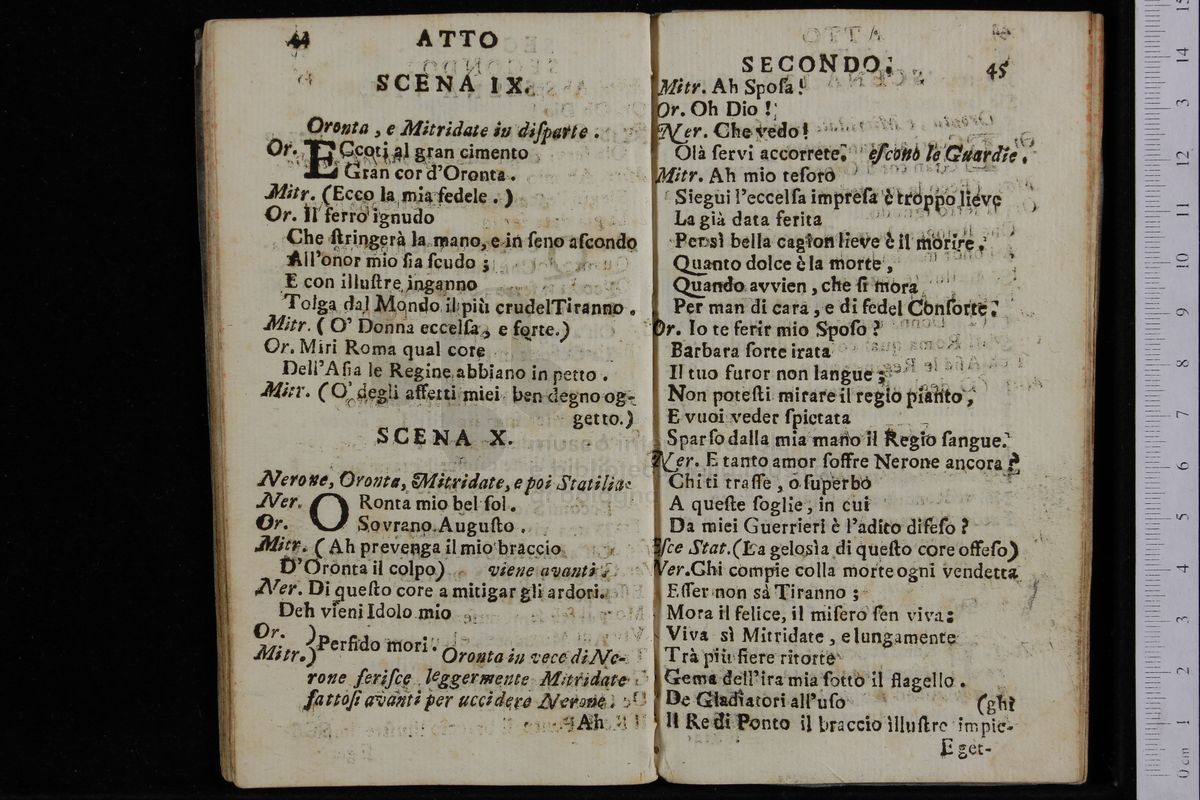 44 ATTO
SCENA IX.
Oronta, e Mitridate in diſparte.
Or. ECcoti al gran cimento
Gran cor d'Oronta.
Mitr. (Ecco la mia fedele.)
Or. Il ferro ignudo
Che ſtringerà la mano, e in ſeno aſcondo
All'onor mio ſia ſcudo;
E con illuſtre inganno
Tolga dal Mondo il più crudel Tiranno.
Mitr. (O' Donna eccelſa, e forte.)
Or. Miri Roma qual core
Dell'Aſia le Regine abbiano in petto.
Mitr. (O' degli affetti miei ben degno og-
getto.)
SCENA X.
Nerone, Oronta, Mitridate, e poi Statilia.
Ner. ORonta mio bel ſol.
Or. Sovrano Auguſto.
Mitr. (Ah prevenga il mio braccio
D'Oronta il colpo) viene avanti.
Ner. Di queſto core a mitigar gli ardori.
Deh vieni Idolo mio
Or. )
Mitr.) Perfido mori. Oronta in vece di Ne-
rone feriſce leggermente Mitridate
fattoſi avanti per uccidere Nerone.
Ah
SECONDO. 45
Mitr. Ah Spoſa!
Or. Oh Dio!
Ner. Che vedo!
Olà ſervi accorrete. eſcono le Guardie.
Mitr. Ah mio teſoro
Siegui l'eccelſa impreſa è troppo lieve
La già data ferita
Per sì bella cagion lieve è il morire.
Quanto dolce è la morte,
Quando avvien, che ſi mora
Per man di cara, e di fedel Conſorte.
Or. Io te ferir mio Spoſo?
Barbara ſorte irata
Il tuo furor non langue;
Non poteſti mirare il regio pianto,
E vuoi veder ſpietata
Sparſo dalla mia mano il Regio ſangue.
Ner. E tanto amor ſoffre Nerone ancora?
Chi ti traſſe, o ſuperbo
A queſte ſoglie, in cui
Da miei Guerrieri è l'adito difeſo?
Eſce Stat. (La geloſia di queſto core offeſo)
Ner. Chi compie colla morte ogni vendetta
Eſſer non sà Tiranno;
Mora il felice, il miſero ſen viva:
Viva sì Mitridate, e lungamente
Trà più fiere ritorte
Gema dell'ira mia ſotto il flagello.
De Gladiatori all'uſo (ghi
Il Re di Ponto il braccio illuſtre impie-
E get-